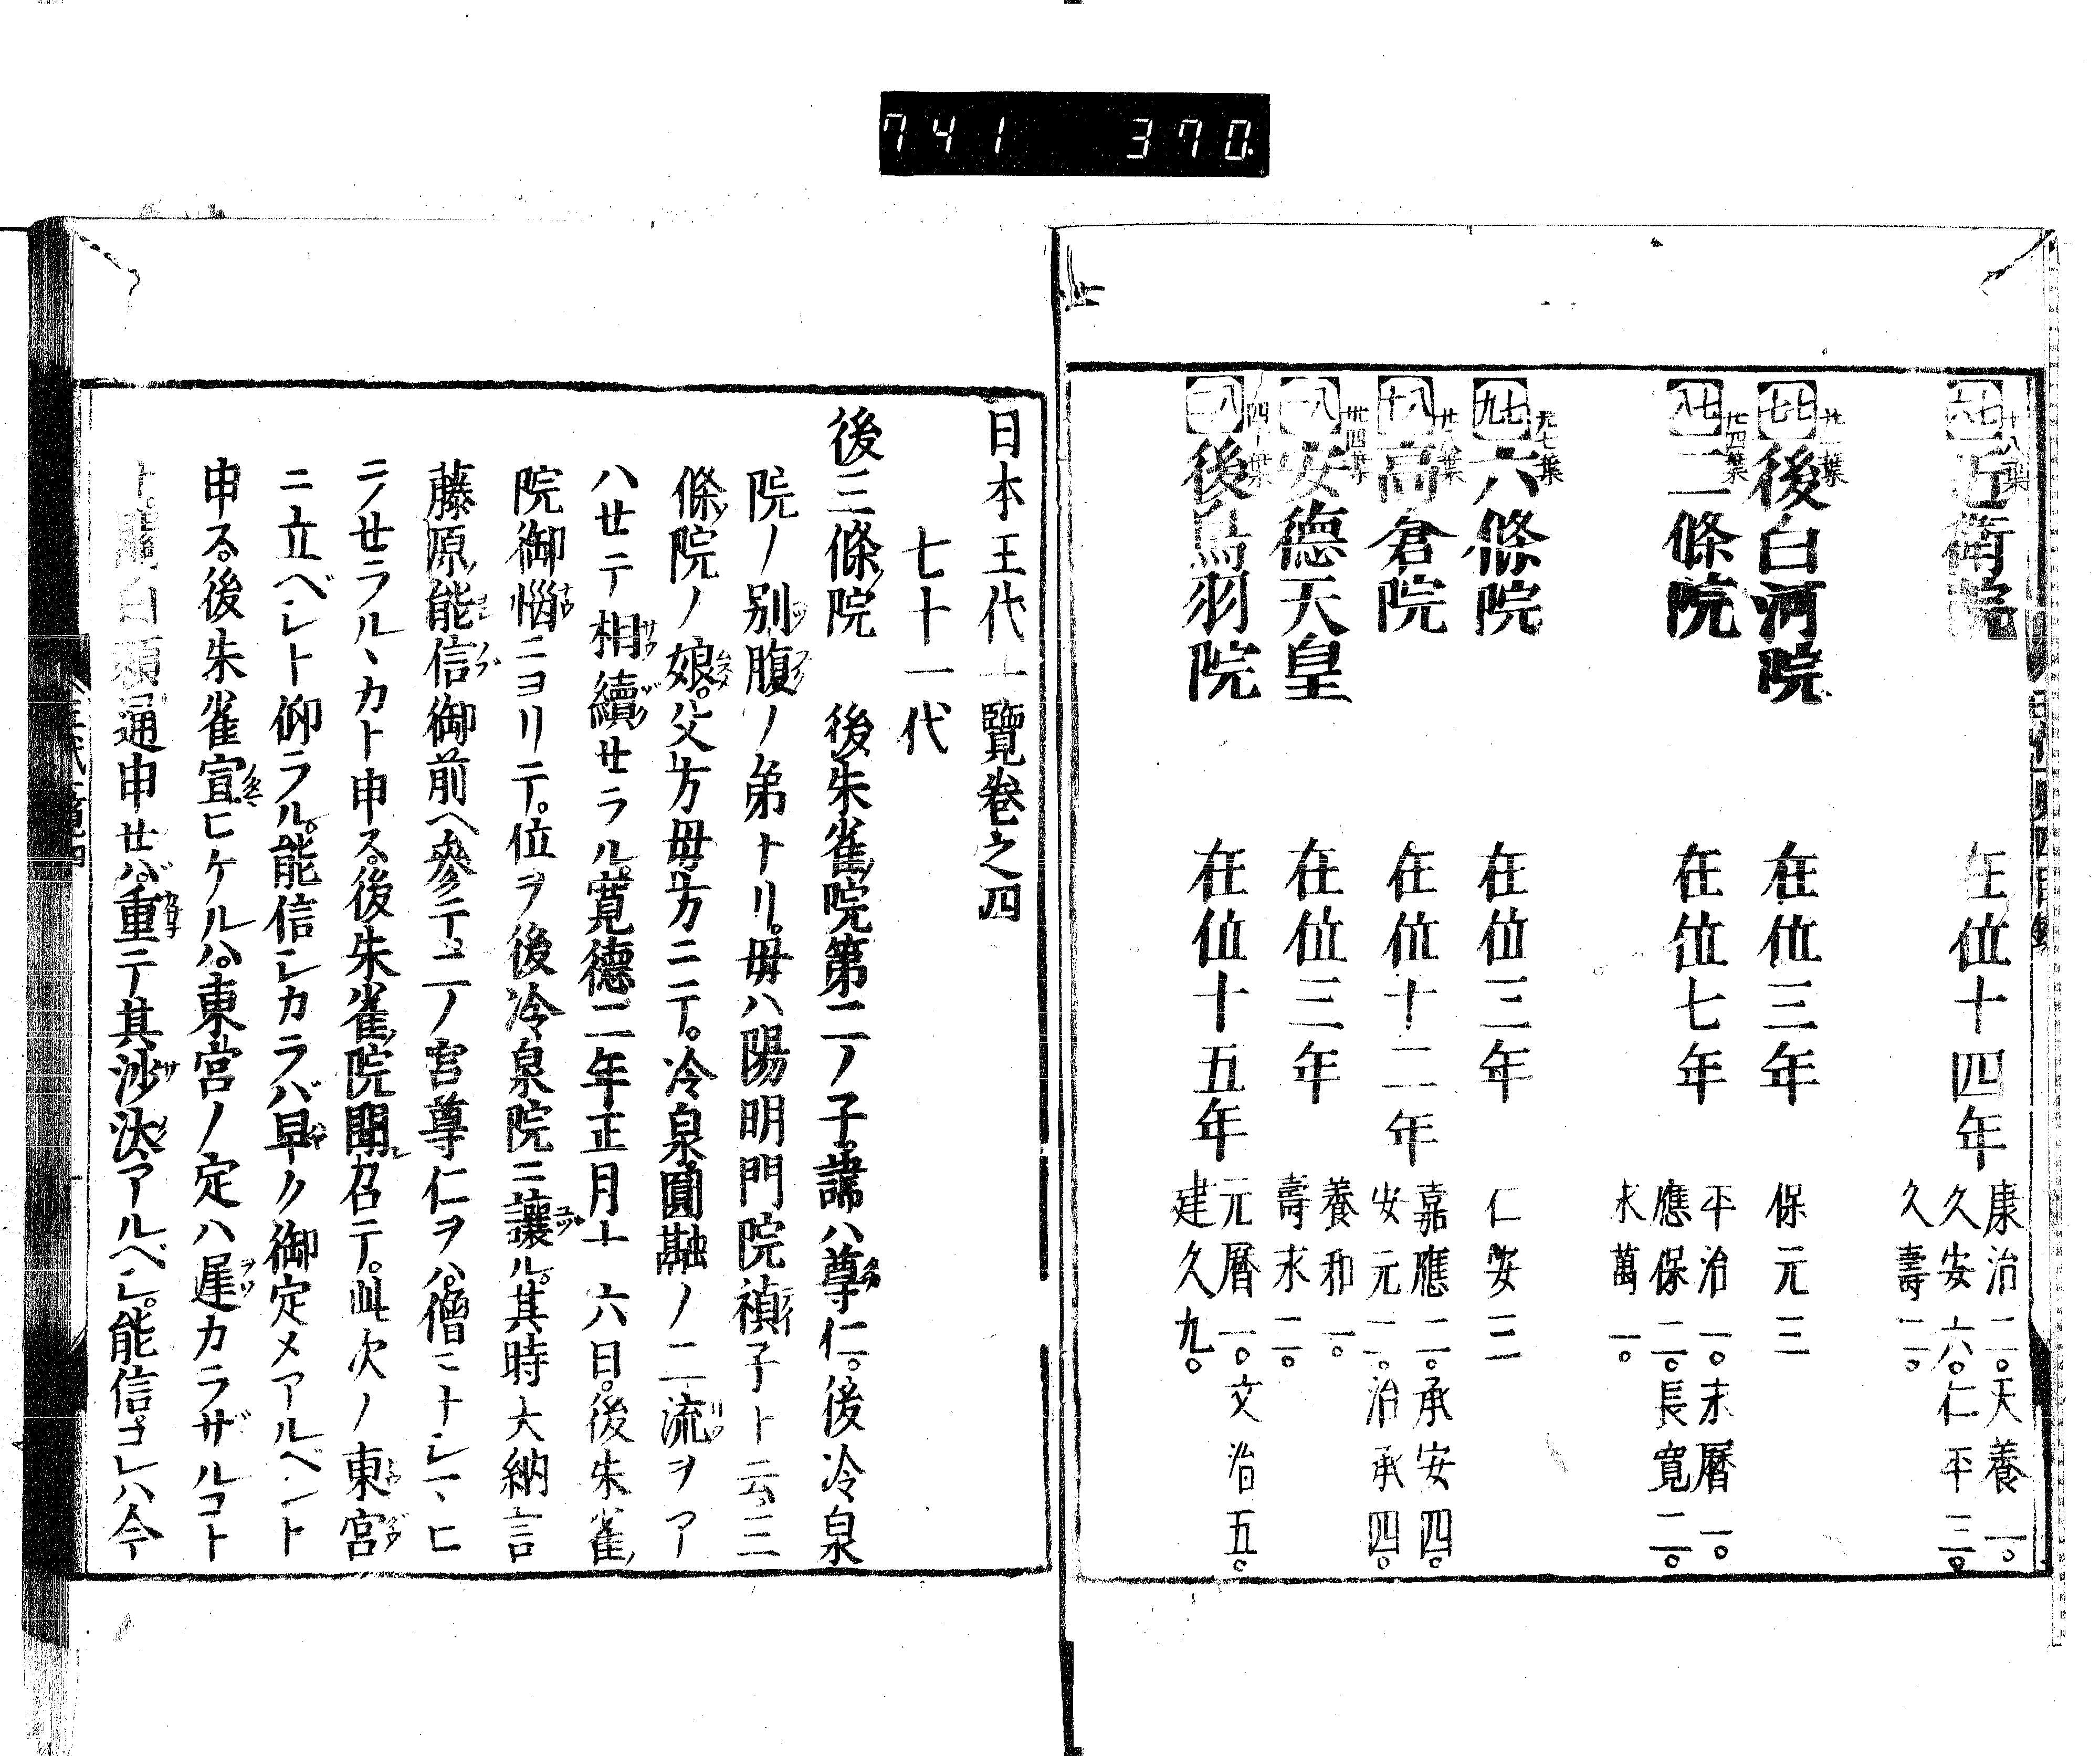 741 370.
七六 十八葉 近衛院 在位十四年 康治二。天養一。久安六。仁平三。久壽二。
七七 後白河院 在位三年 保元三
七八 二條院 在位七年 平治一。永暦一。應保二。長寛二。永萬一。
七九 六條院 在位三年 仁安三
八十 高倉院 在位十二年 嘉應二。承安四。安元二。治承四。
八一 安德天皇 在位三年 養和一。壽永二。
八二 後鳥羽院 在位十五年 元暦一。文治五。建久九。
日本王代一覽卷之四
七十一代
後三條院 後朱雀院第二ノ子諱ハ尊仁。後冷泉
院ノ別腹ノ弟トリ。母ハ陽明門院禎子ト云三
條院ノ娘。父方母方ニテ。冷泉圓融ノ二流ヲア
ハセテ相續セラル。寛德二年正月十六日。後朱雀
院御惱ニヨリテ。位ヲ後冷泉院ニ讓ル。其時大納言
藤原能信御前ヘ參テ二ノ宮尊仁ヲハ。僧ニナシマヒ
ニノセラルヽカト申ス。後朱雀院聞召テ。此次ノ東宮
ニ立ベシト仰ラル。能信シカラバ早ク御定メアルベシト
申ス。後朱雀宣ヒケルハ。東宮ノ定ハ遅カラザルコト
ト。關白頼通申セバ。重テ其沙汰アルベシ。能信コレハ今